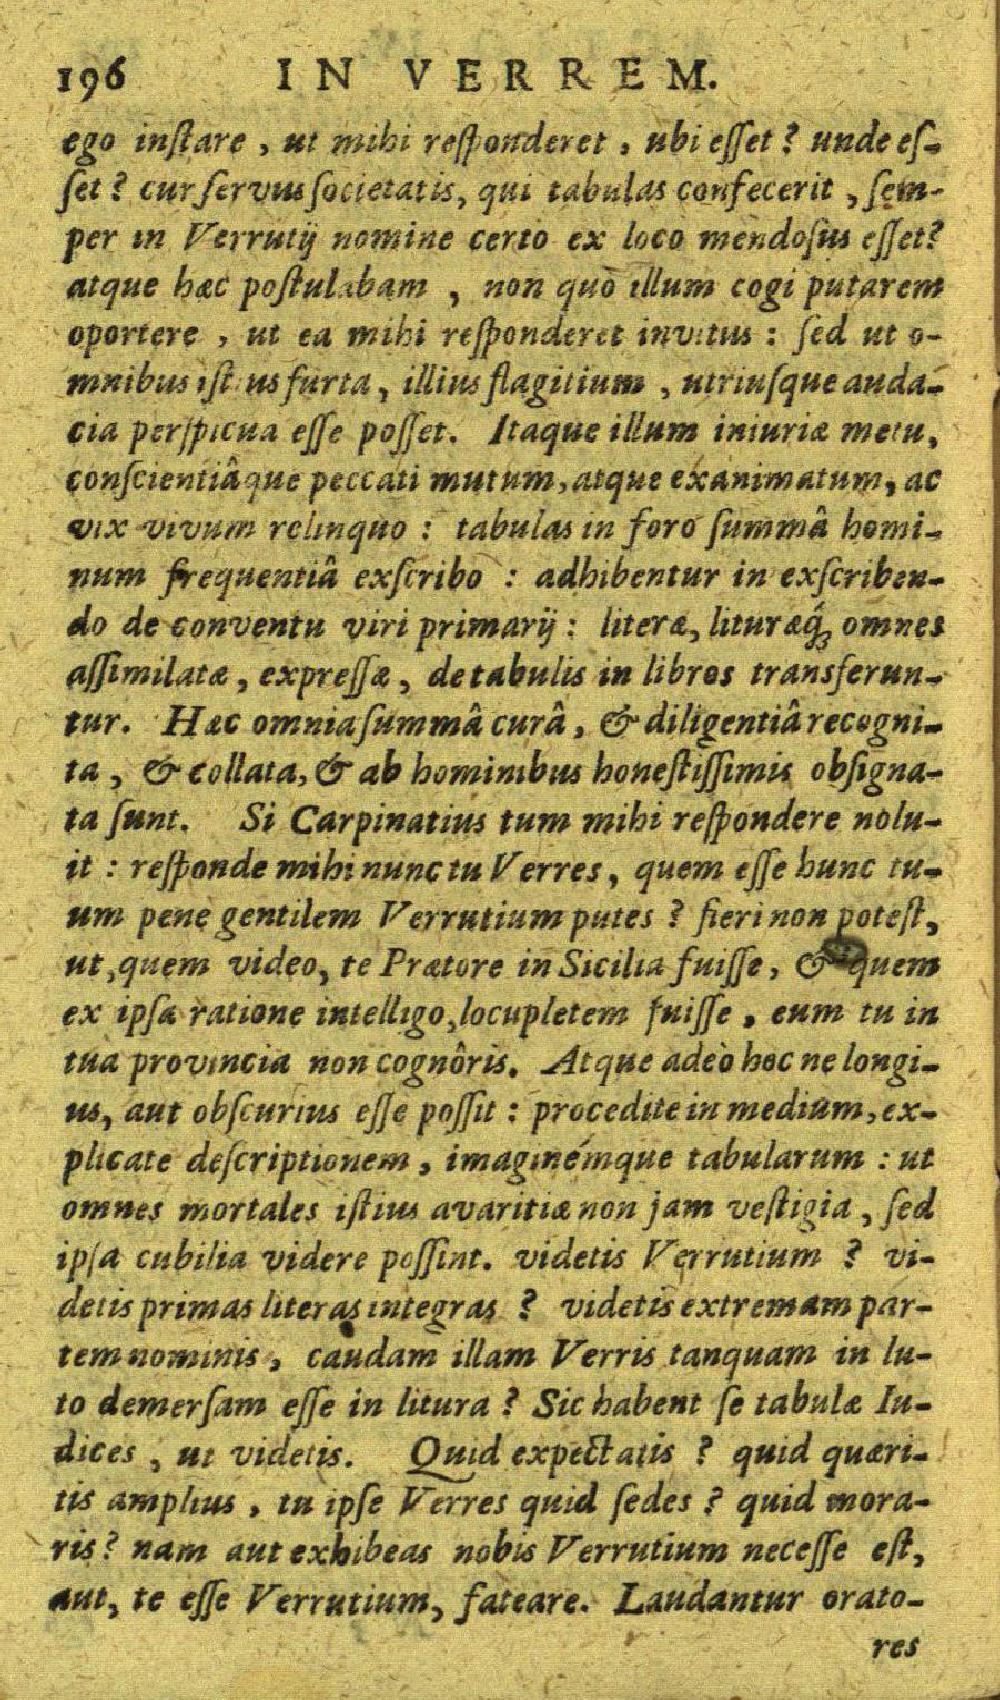 196 IN VERREM.
ego inſtare, ut mihi reſponderet, ubi eſſet? unde eſ-
ſet? cur ſervus ſocietatis, qui tabulas confecerit, ſem-
per in Verrutij nomine certo ex loco mendoſus eſſet?
atque hæc poſtulabam, non quò illum cogi putarem
oportere, ut ea mihi reſponderet invitus: ſed ut o-
mnibus iſtius furta, illius flagitium, utriuſque auda-
cia perſpicua eſſe poſſet. Itaque illum iniuriæ metu,
conſcientiâque peccati mutum, atque exanimatum, ac
vix vivum relinquo: tabulas in foro ſummâ homi-
num frequentiâ exſcribo: adhibentur in exſcriben-
do de conventu viri primarij: literæ, lituræq́; omnes
aſſimilatæ, expreſſæ, de tabulis in libros transferun-
tur. Hæc omnia ſummâ curâ, & diligentiâ recogni-
ta, & collata, & ab hominibus honeſtiſſimis obſigna-
ta ſunt. Si Carpinatius tum mihi reſpondere nolu-
it: reſponde mihi nunc tu Verres, quem eſſe hunc tu-
um pene gentilem Verrutium putes? fieri non poteſt,
ut, quem video, te Prætore in Sicilia fuiſſe, & quem
ex ipſa ratione intelligo, locupletem fuiſſe, eum tu in
tua provincia non cognôris. Atque adeò hoc ne longi-
us, aut obſcurius eſſe poſſit: procedite in medium, ex-
plicate deſcriptionem, imaginémque tabularum: ut
omnes mortales iſtius avaritiæ non jam veſtigia, ſed
ipſa cubilia videre poſſint. videtis Verrutium? vi-
detis primas literas integras? videtis extremam par-
tem nominis, caudam illam Verris tanquam in lu-
to demerſam eſſe in litura? Sic habent ſe tabulæ Iu-
dices, ut videtis. Quid expectatis? quid quæri-
tis amplius, tu ipſe Verres quid ſedes? quid mora-
ris? nam aut exhibeas nobis Verrutium neceſſe eſt,
aut, te eſſe Verrutium, fateare. Laudantur orato-
res